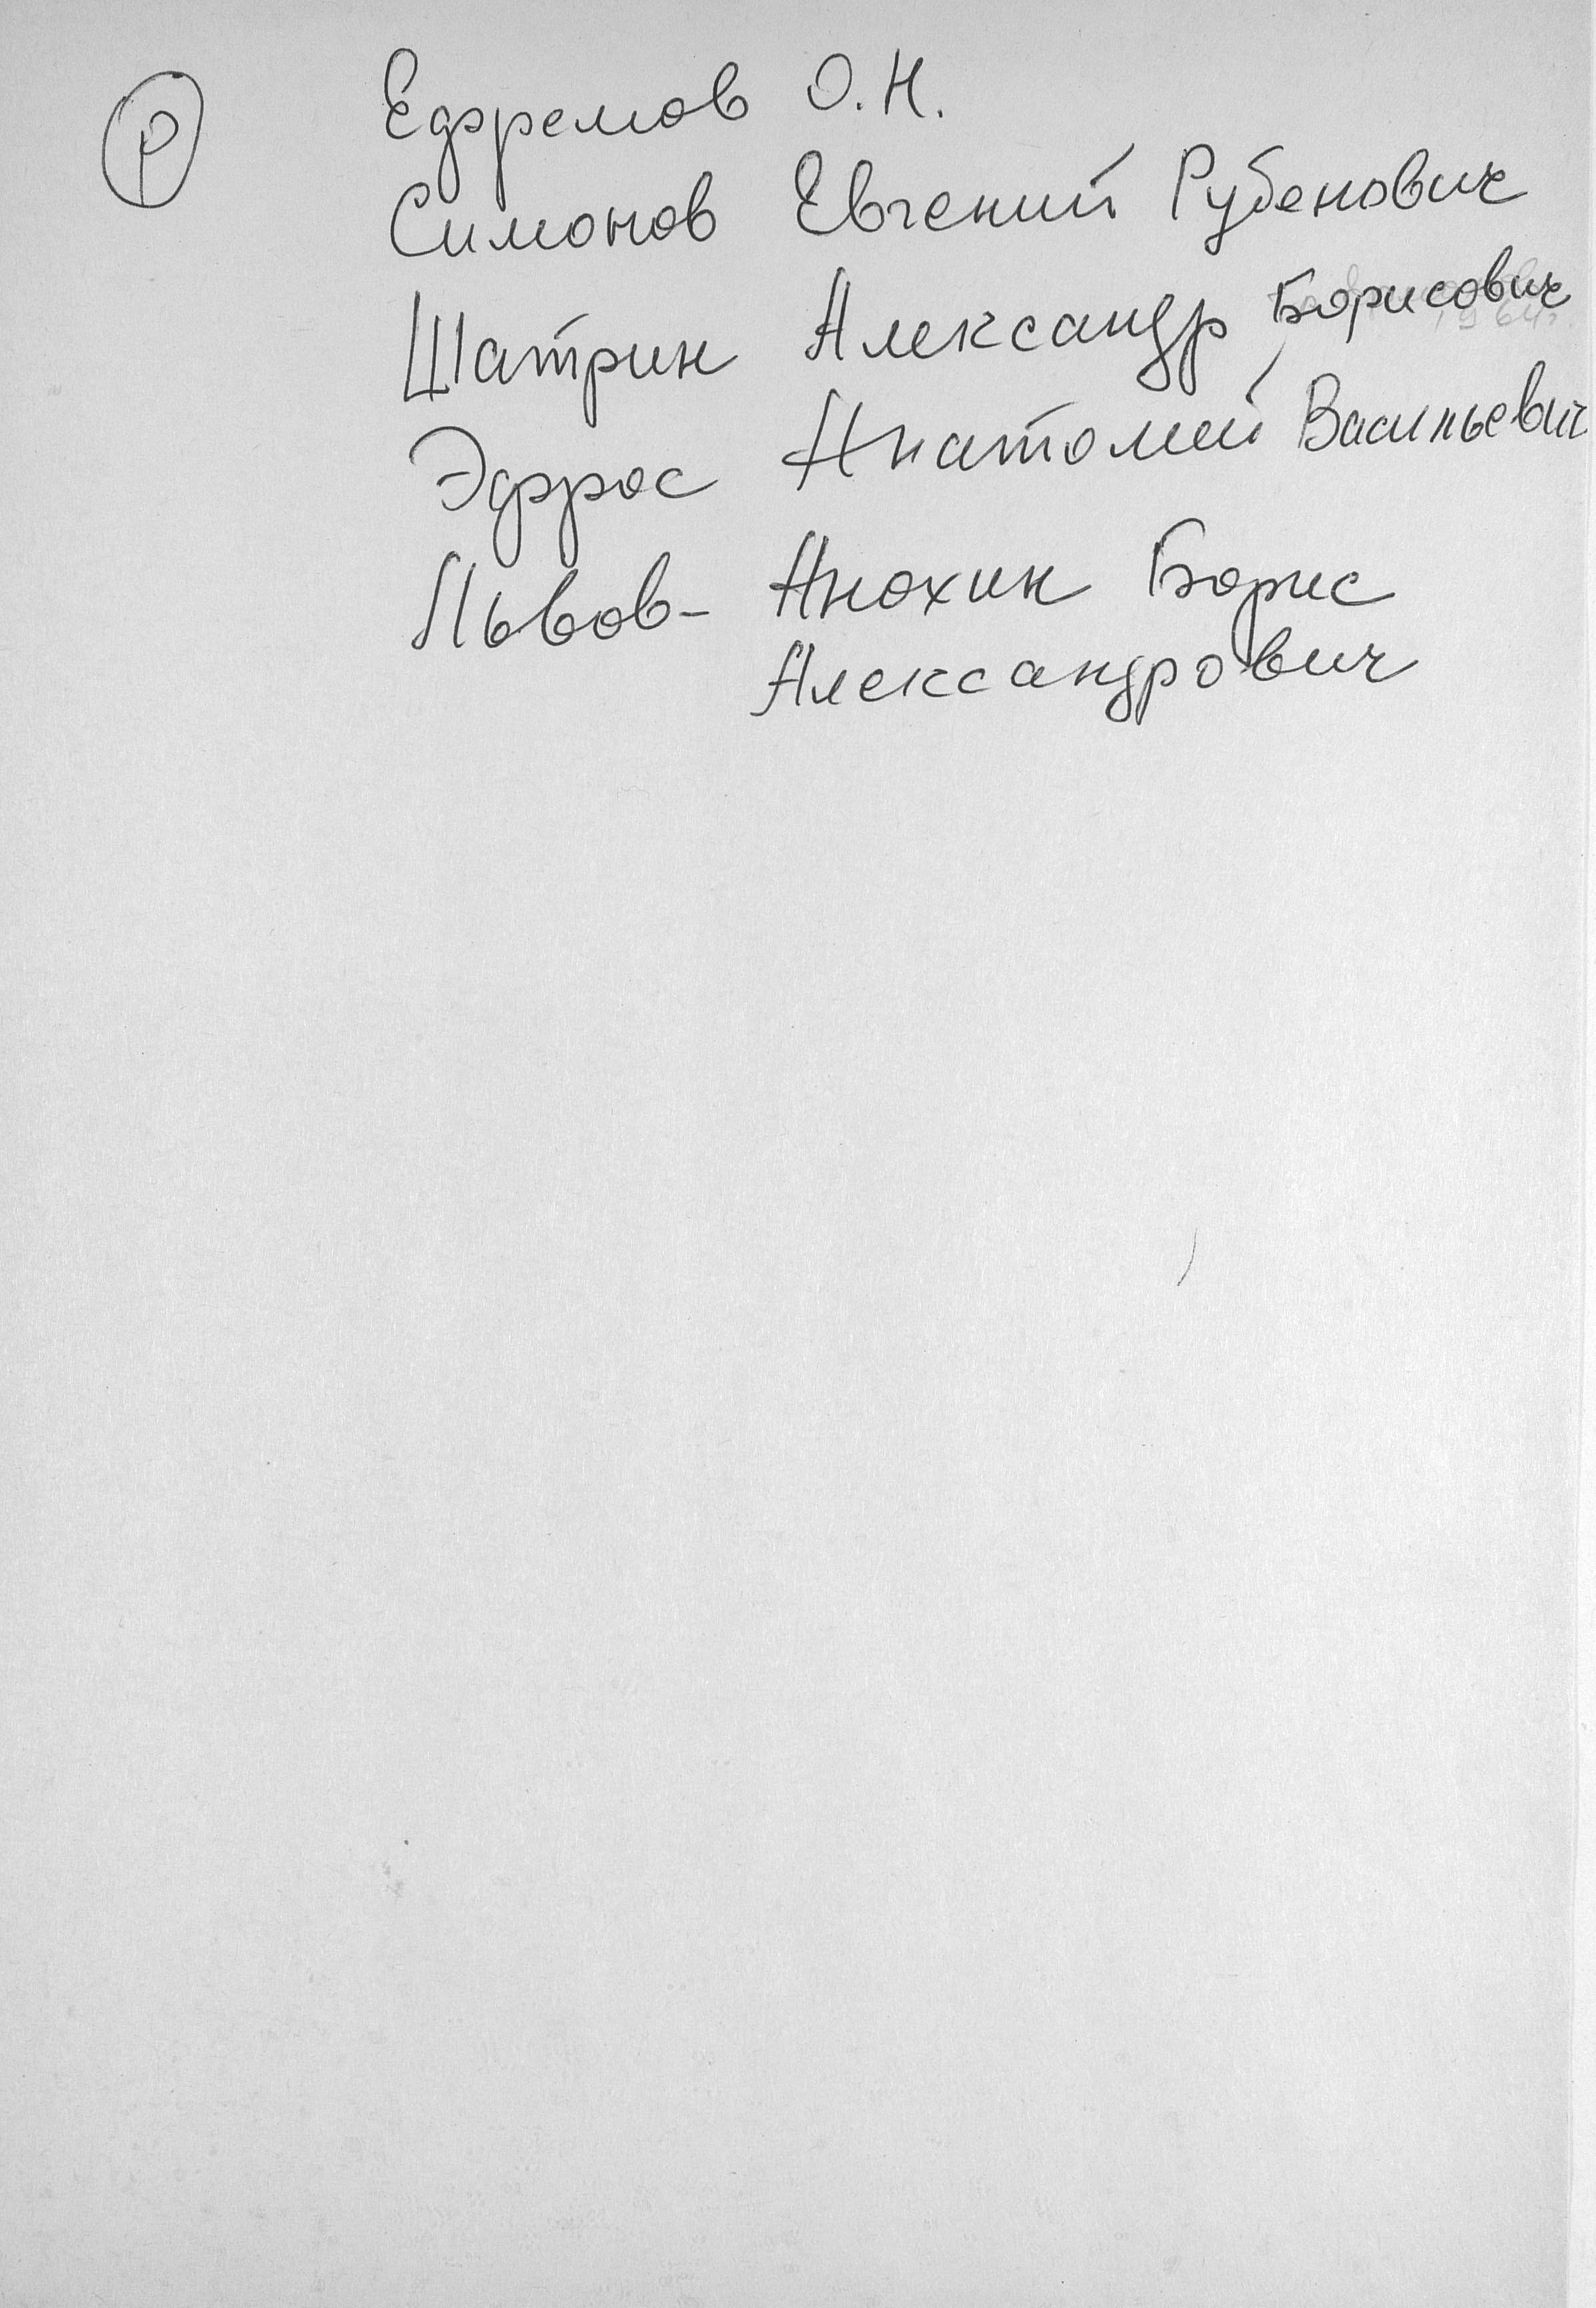 Р
Ефремов О.Н.
Симонов Евгений Рубенович
Шатрин Александр Борисович
Эфрос Анатолий Васильевич
Львов- Анохин Борис
Александрович